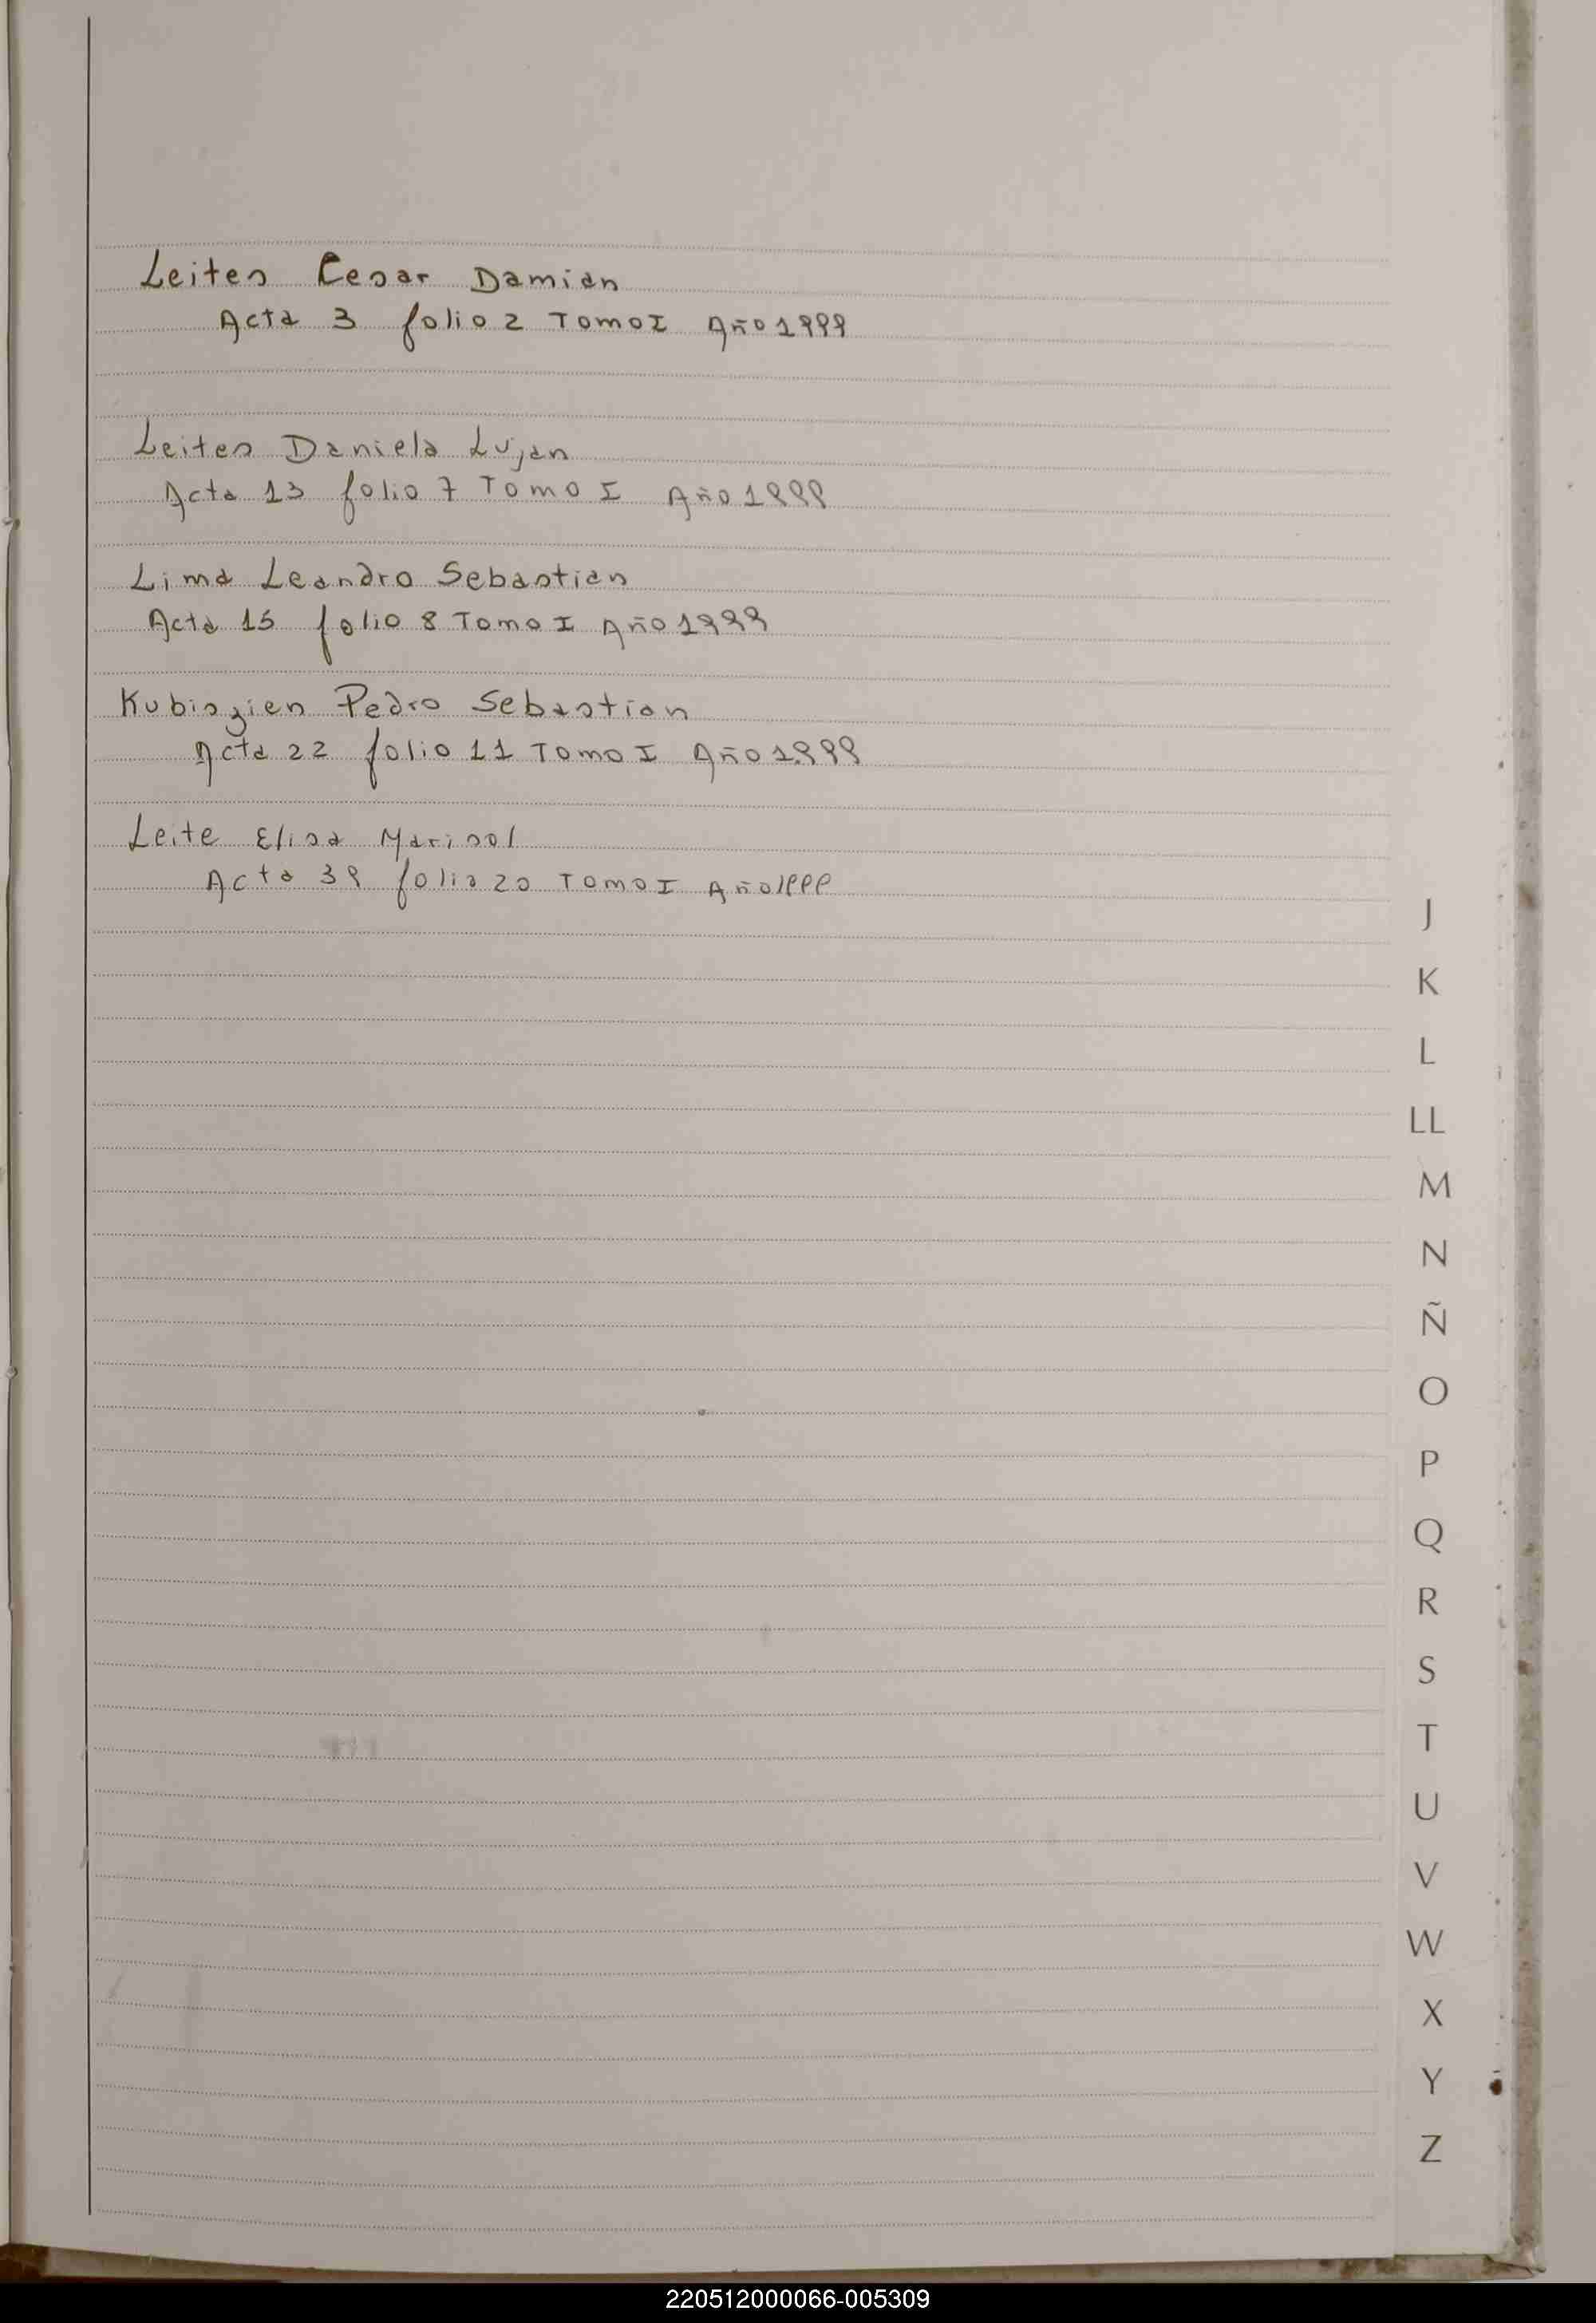 Leites Cesar Damian
Acta 3 folio 2 Tomo I Año 1999
Leites Daniela Lujan
Acta 13 folio 7 Tomo I Año 1999
Lima Leandro Sebastian
Acta 15 folio 8 Tomo I Año 1999
Pedro Sebastian
Acta 22 folio 11 Tomo I Año 1999
Leite Elisa Marisol
Acta 39 folio 20 Tomo I Año 1999
J
K
L
LL
M
N
Ñ
O
P
Q
R
S
T
U
V
W
X
Y
Z
220512000066-005309